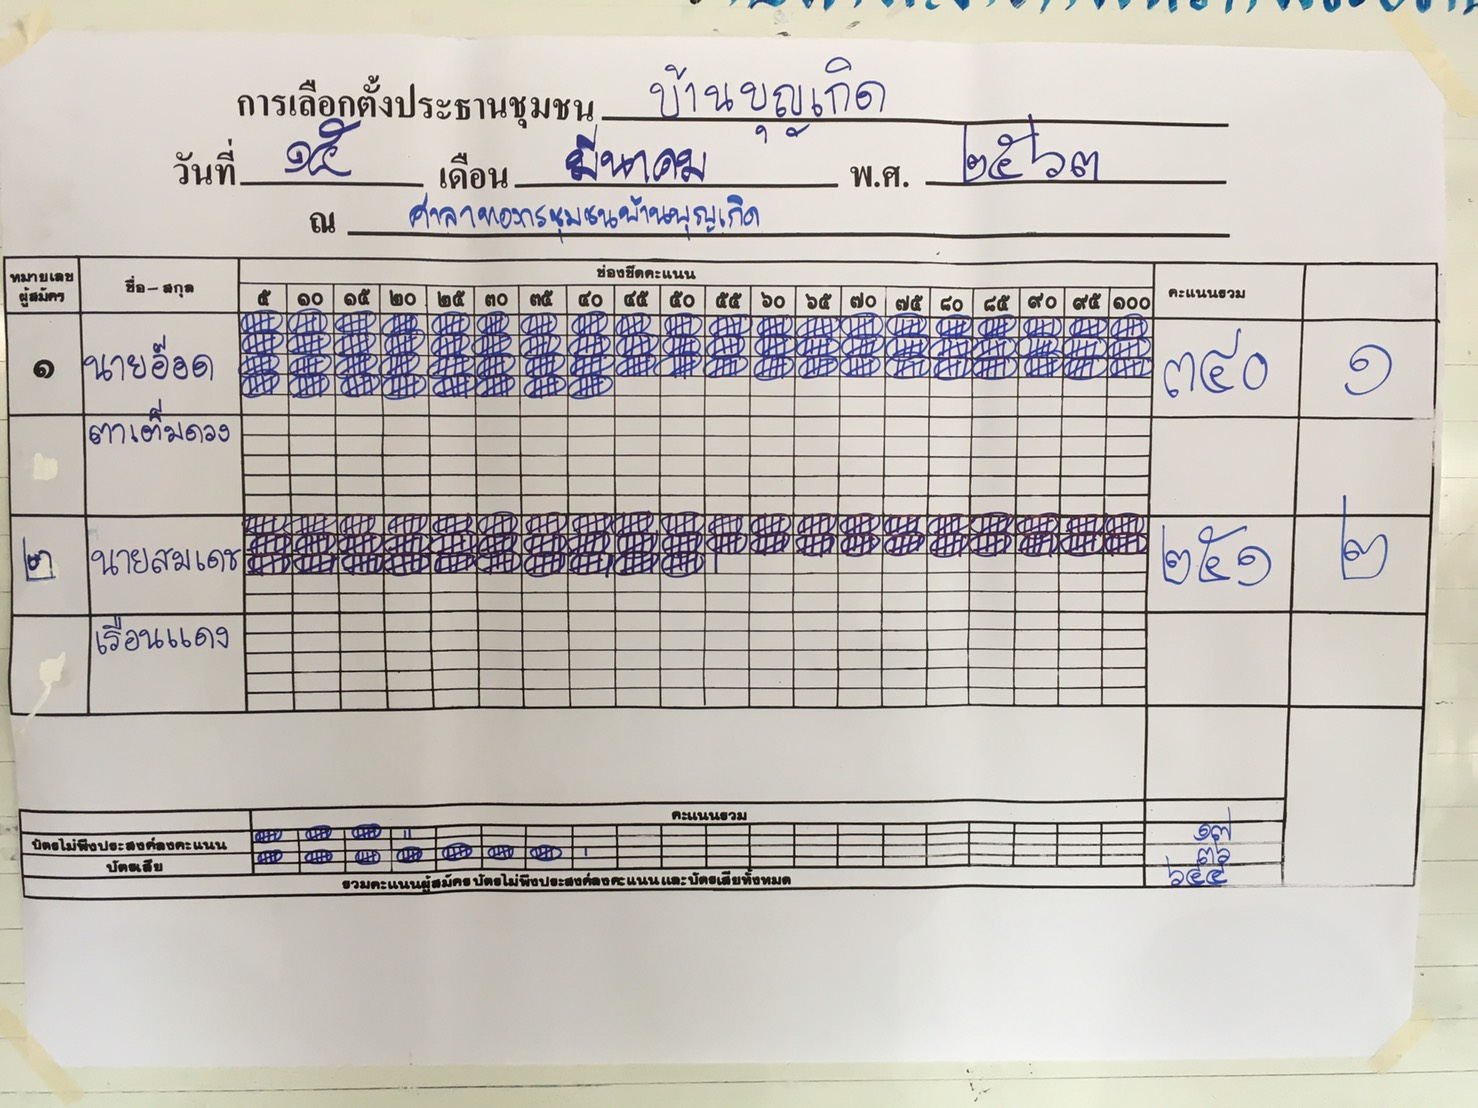 การเลือกตั้งประธานชุมชน บ้านบุญเกิด
วันที่ ๑๕ เดือน มีนาคม พ.ศ. ๒๕๖๓
ณ ศาลาทองการชุมชนบ้านบุญเกิด
หมายเลขผู้สมัคร ชื่อ-สกุล ช่องขีดคะแนน คะแนนรวม
๕ ๑๐ ๑๕ ๒๐ ๒๕ ๓๐ ๓๕ ๔๐ ๔๕ ๕๐ ๕๕ ๖๐ ๖๕ ๗๐ ๗๕ ๘๐ ๘๕ ๙๐ ๙๕ ๑๐๐
๑ นายอ๊อด ๓๔๐ ๑
ตาเติ่มดวง
๒ นายสมเดช ๒๕๑ ๒
เรือนแดง
คะแนนรวม
บัตรไม่พึงประสงค์ลงคะแนน ๑๗
บัตรเสีย ๓๖
รวมคะแนนผู้สมัคร บัตรไม่พึงประสงค์ลงคะแนน และบัตรเสียทั้งหมด ๖๔๔